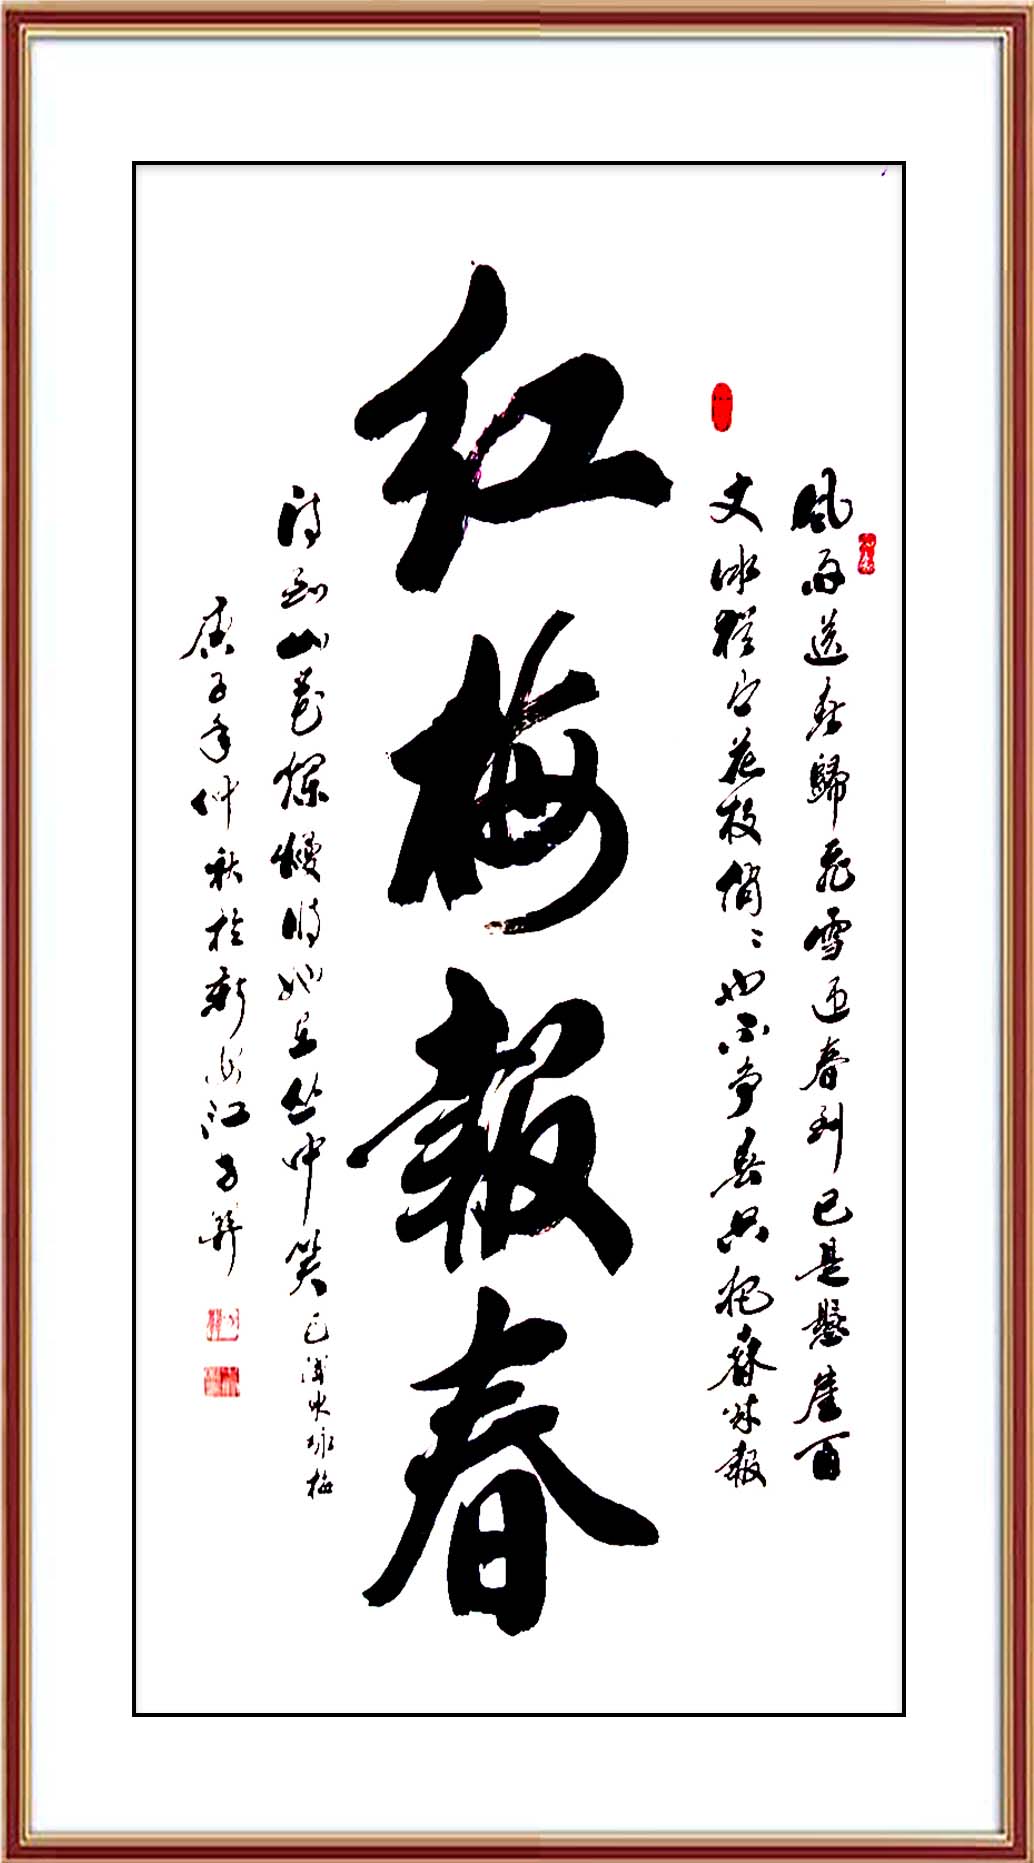 風雨送春歸飛雪迎春到已是懸崖百
丈冰猶有花枝俏〻也不争春只把春來報
红梅報春
待到山花爛熳時她在丛中笑毛澤东咏梅
庚子年仲秋於新江子